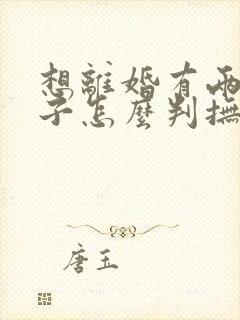 想離婚有兩
子怎麼判撫
唐玉